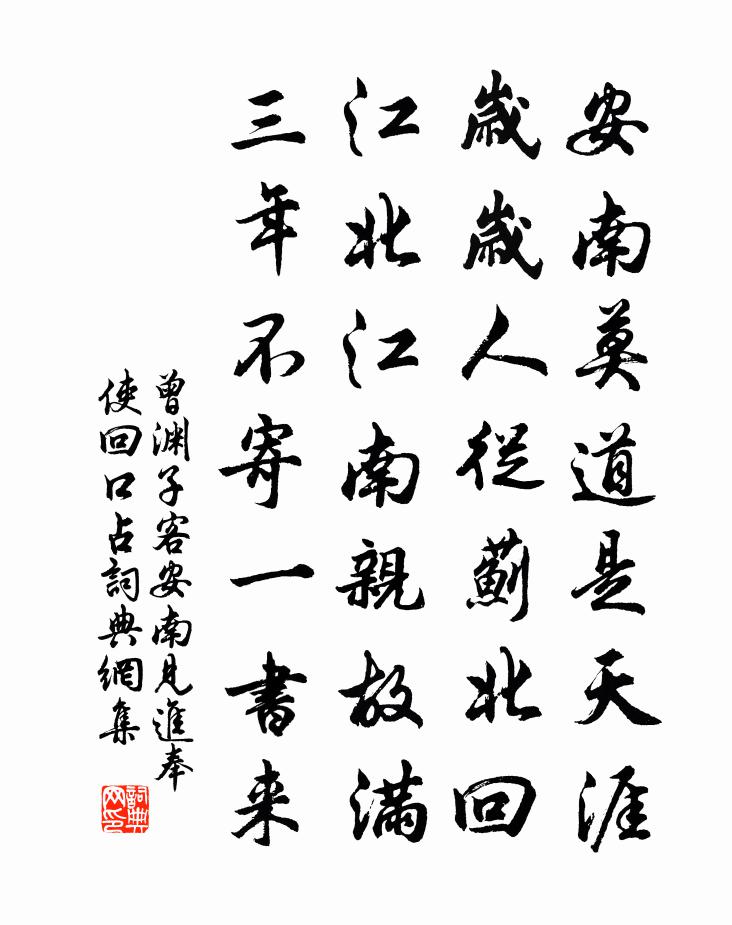 安南莫道是天涯
歲歲人從薊北回
江北江南親故滿
三年不寄一書来
曾渊子客安南見進奉
使回口占詞典網集
詞典
网印